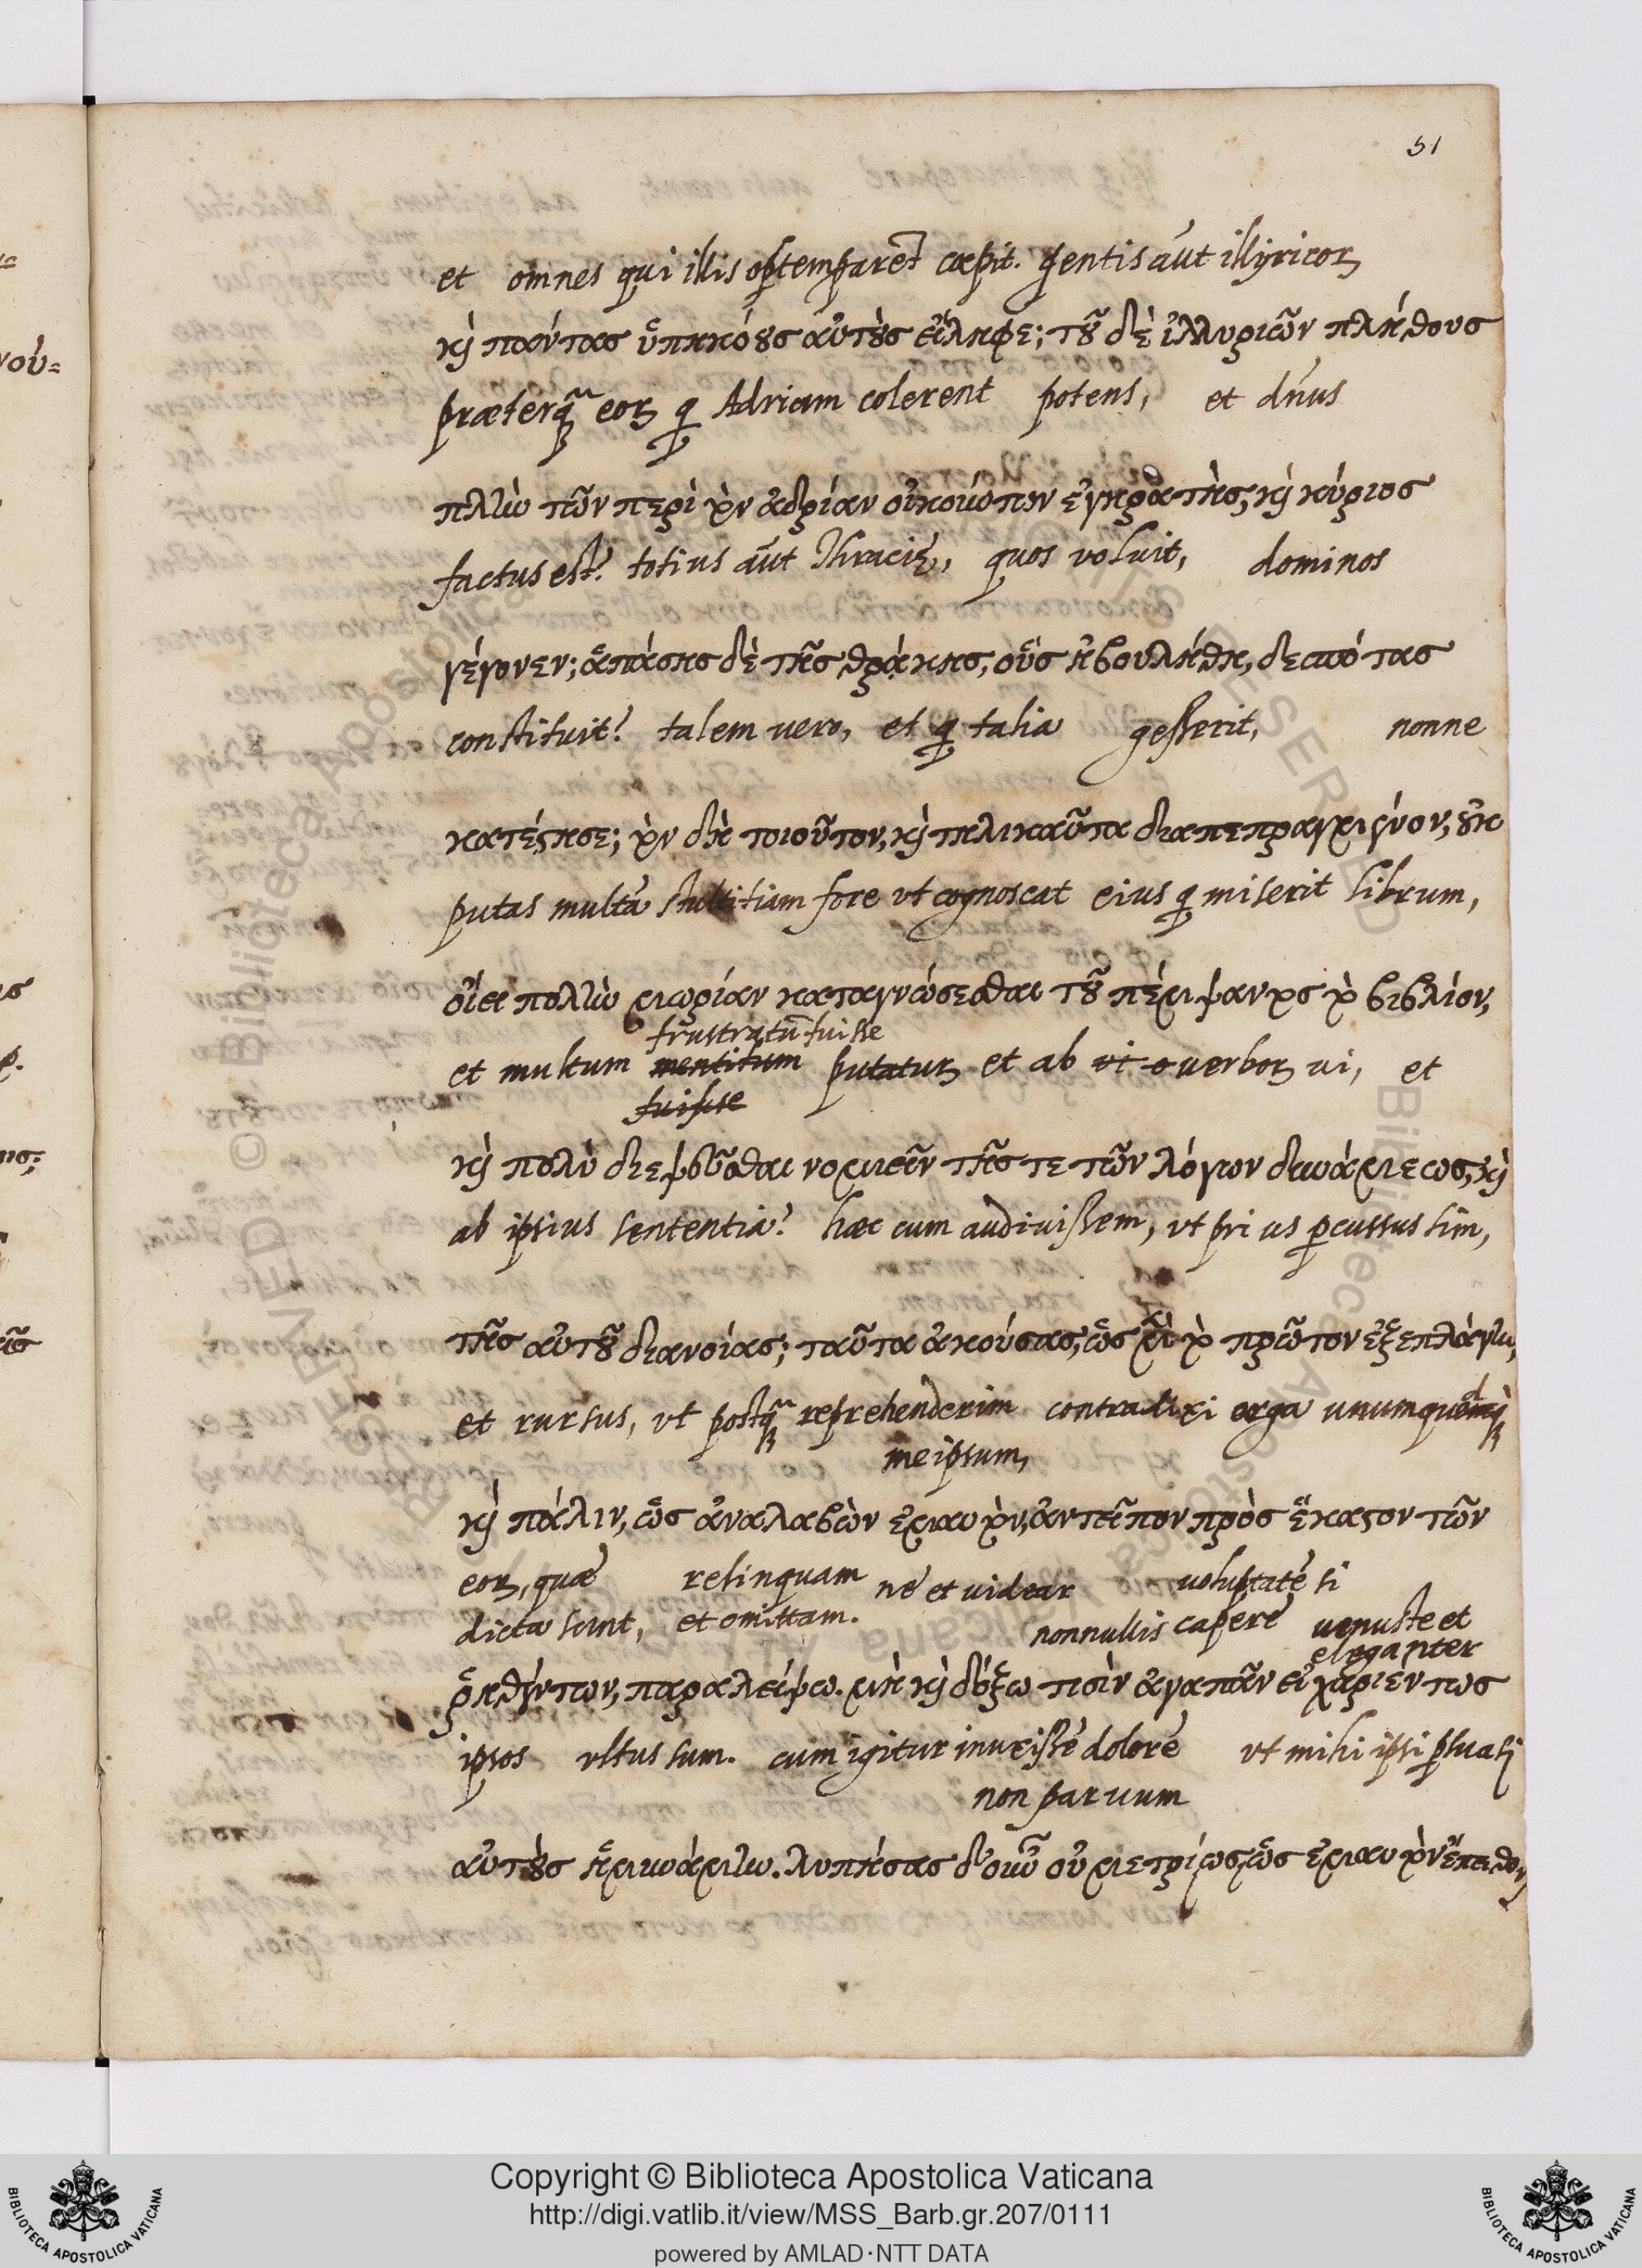 51
et omnes qui illis optemparēt cœpit. gentis aūt illyricoꝝ
καὶ πάντας ὑπηκόους αὐτοὺς εἴληφε; τοῦ δὲ ἰλλυριῶν πλήθους
præterq̄ȝ eoꝝ q̄ Adriam colerent potens, et dn̄us
πλὴν τῶν περὶ τὸν ἀδρίαν οἰκούντων ἐγκρατὴς, καὶ κύριος
factus est? totius aūt Thraciȩ, quos voluit, dominos
γέγονεν; ἁπάσης δὲ τῆς θρᾴκης, οὓς ἠβουλήθη, δεσπότας
constituit? talem uero, et q̄ talia gesserit, nonne
κατέστησε; τὸν δὴ τοιοῦτον, καὶ τηλικαῦτα διαπεπραγμένον, οὐκ
putas multā stultitiam fore vt cognoscat eius q̄ miserit librum,
οἴει πολλὴν μωρίαν καταγνώσεσθαι τοῦ πέμψαντος τὸ βιβλίον,
frustratū fuisse
et multum mentitum putatur et ab uerboꝝ ui, et
fuisse
καὶ πολὺ διεψεῦσθαι νομιεῖν τῆς τε τῶν λόγων δυνάμεως, καὶ
ab ipsius sententia? hæc cum audiuissem, vt pri us pcussus sim,
τῆς αὐτοῦ διανοίας; ταῦτα ἀκούσας, ὡς τὸ πρῶτον ἐξεπλάγην,
et rursus, vt postq̄ȝ reprehenderim contradixi erga unumquodq̄ȝ
meipsum,
καὶ πάλιν, ὡς ἀναλαβὼν ἐμαυτὸν, ἀντεῖπον πρὸς ἕκαστον τῶν
eoꝝ, quæ relinquam ne et uidear uoluptatē si
dicta sunt, et omittam. nonnullis capere uenuste et
eleganter
ῥηθέντων, παραλείψω. μὴ καὶ δόξω τισὶν ἀγαπᾶν εἰ χαριέντως
ipsos vltus sum. cum igitur inuexissē dolorē vt mihi ipsi psuasi
non paruum
αὐτοὺς ἠμυνάμην. λυπήσας δ' οὖν οὐ μετρίως, ὡς ἐμαυτὸν ἔπειθον,
Copyright © Biblioteca Apostolica Vaticana
http://digi.vatlib.it/view/MSS_Barb.gr.207/0111
powered by AMLAD·NTT DATA
BIBLIOTECA APOSTOLICA VATICANA
BIBLIOTECA APOSTOLICA VATICANA